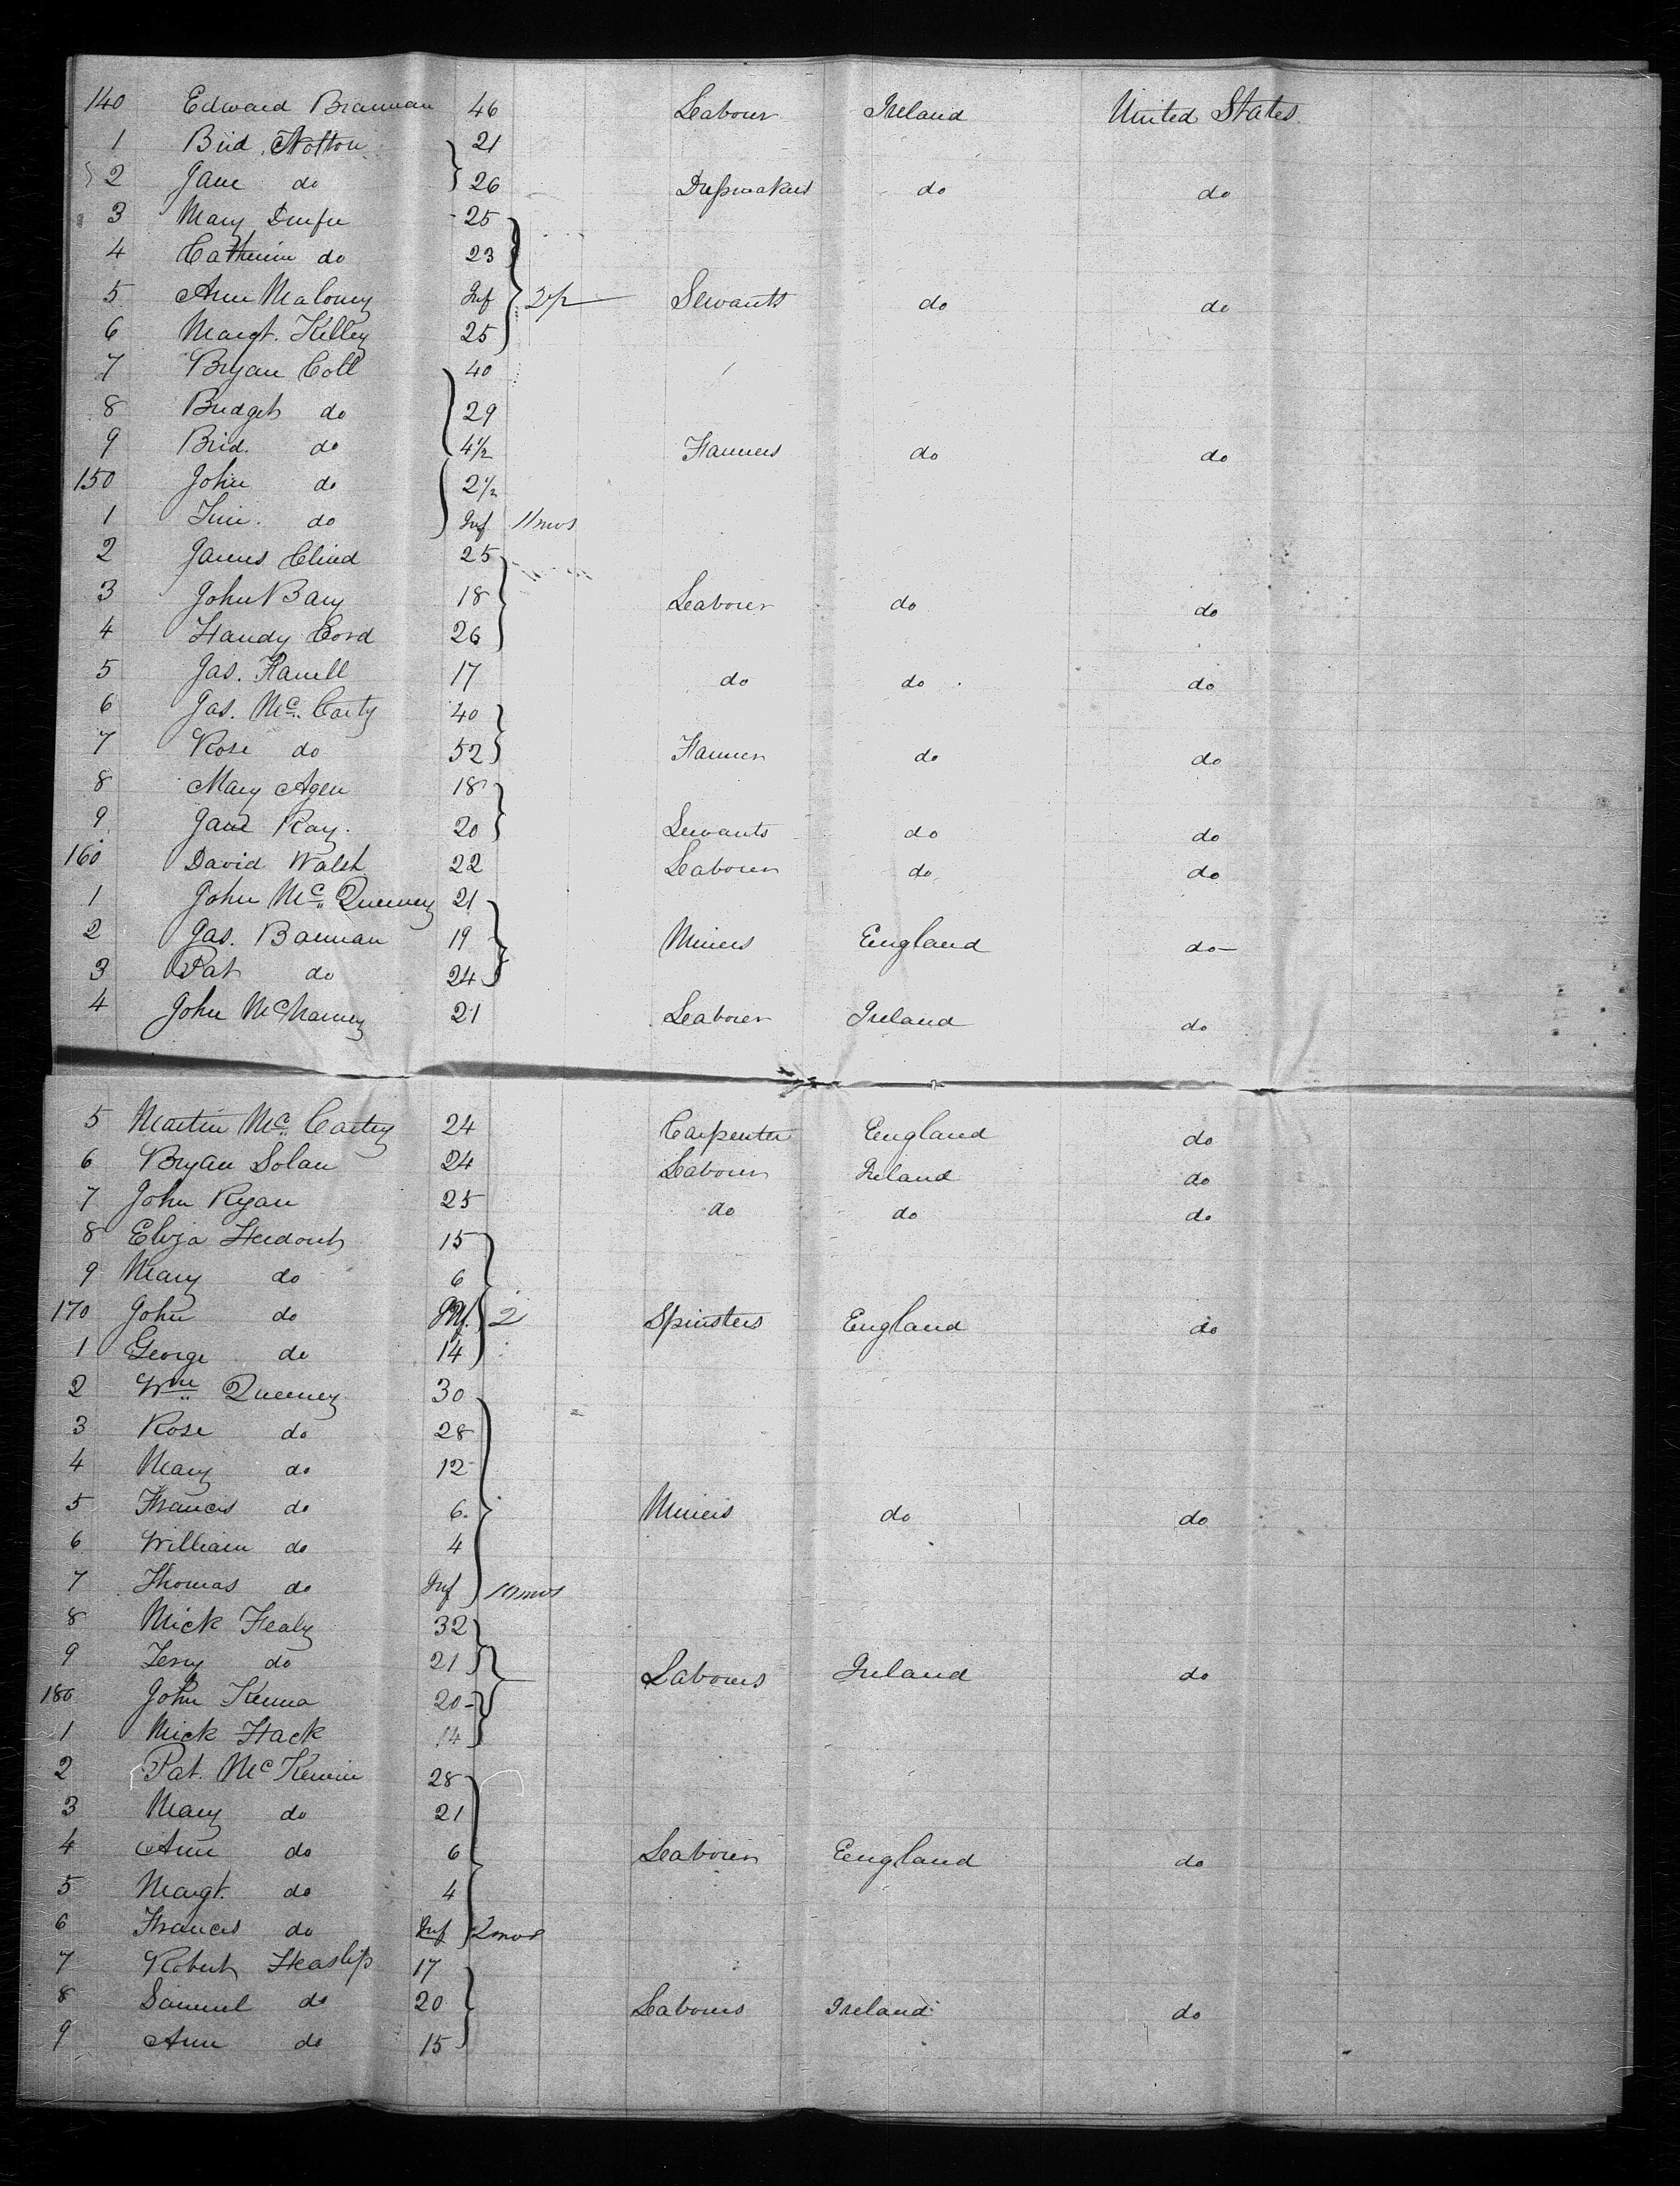 140 Edward Brannan 46 Labour Ireland United States
1 Brid. Notton 21
2 Jane do 26 Dressmakers do do
3 Mary Durfee 25
4 Catherine do 23
5 Ann Maloney Inf Servants do do
6 Margt. Kelley 25
7 Bryan Coll 40
8 Bridget do 29
9 Brid. do 4½ Farmers do do
150 John do 2½
1 do Inf 11 mos
2 James Clind 25
3 John Bary 18 Labourer do do
4 Handy Cord 26
5 Jas. Farrell 17 do do do
6 Jas. Mc. Carty 40
7 Rose do 52 Farmer do do
8 Mary Agen 18
9 Jane Ray. 20 Servants do do
160 David Walsh 22 Labourer do do
1 John Mc. Queeney 21
2 Jas. Bannan 19 Miners England do
3 Pat do 24
4 John McNamey 21 Labourer Ireland do
5 Martin Mc. Cartey 24 Carpenter England do
6 Bryan Solan 24 Labourer Ireland do
7 John Ryan 25 do do do
8 Eliza 15
9 Mary do 6
170 John do Inf. 2 Spinsters England do
1 George do 14
2 Wm Queeney 30
3 Rose do 28
4 Mary do 12
5 Francis do 6 Miners do do
6 William do 4
7 Thomas do Inf 10 mos
8 Mick Healy 32
9 Terry do 21 Labourers Ireland do
180 John Kenna 20
1 Mick Hack 14
2 Pat. McKennin 28
3 Mary do 21
4 Ann do 6 Labourer England do
5 Margt. do 4
6 Francis do Inf 2 mos
7 Robert Heaslip 17
8 Samuel do 20 Labourers Ireland do
9 Ann do 15